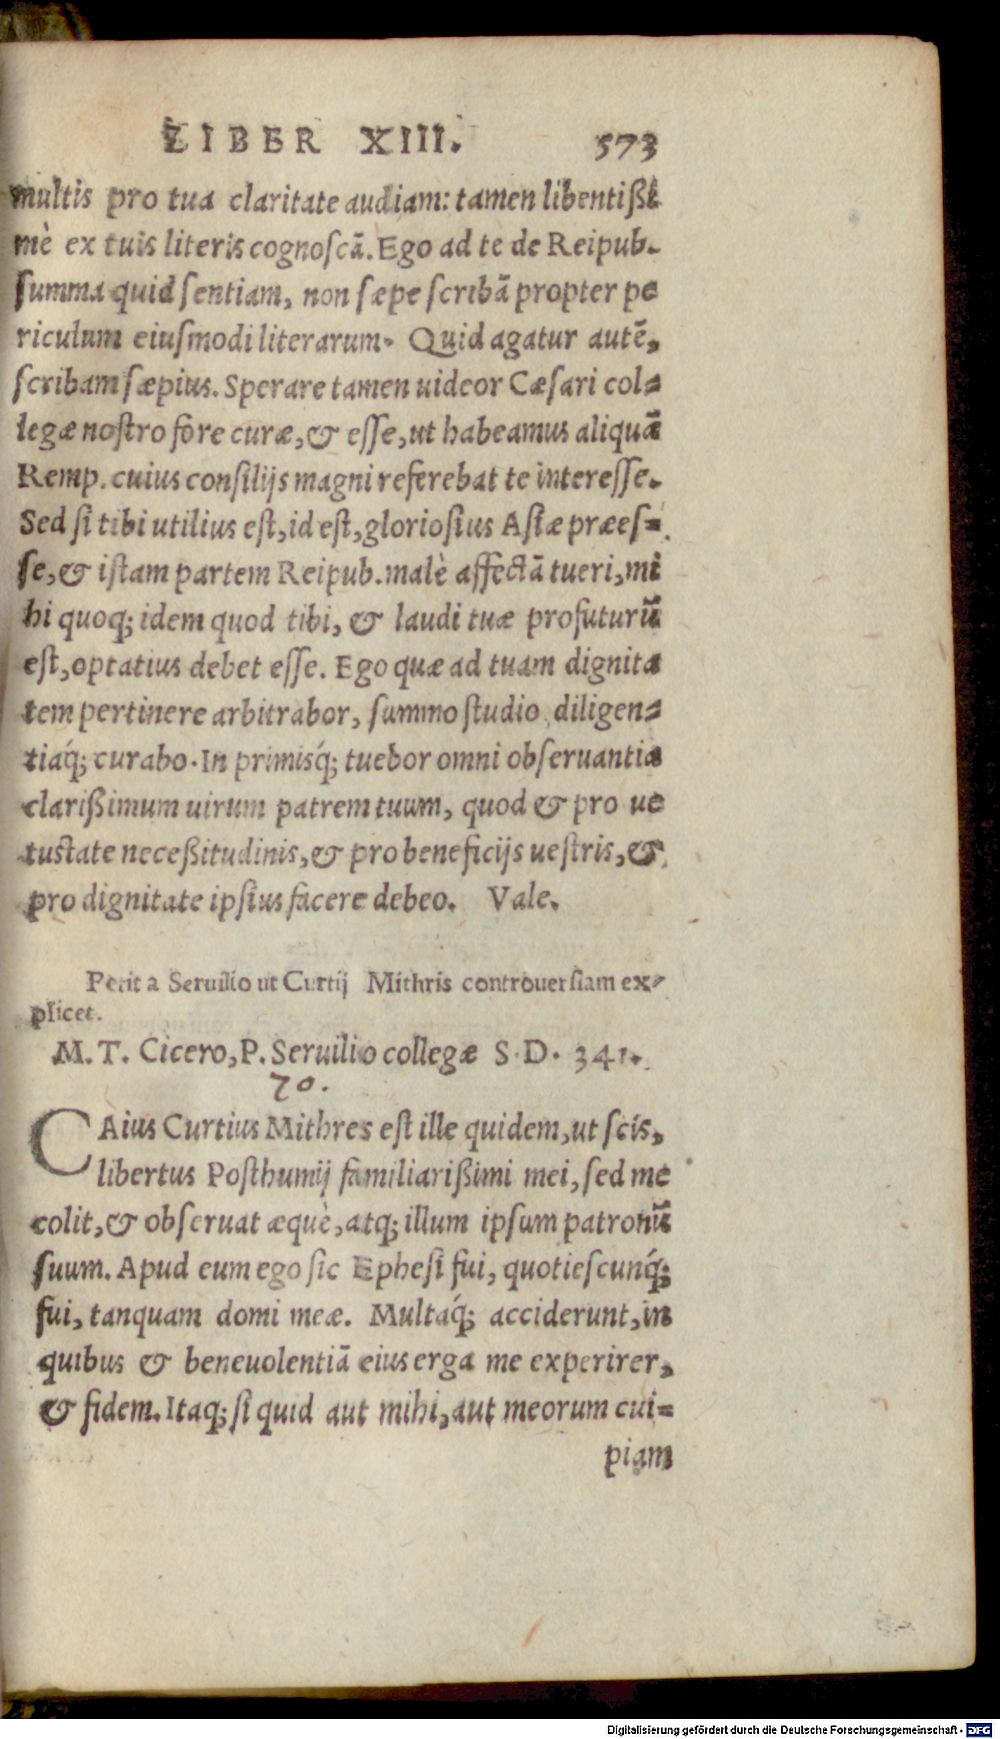 LIBER XIII. 573
multis pro tua claritate audiam: tamen libentißi
mè ex tuis literis cognoſcā. Ego ad te de Reipub.
ſumma quid ſentiam, non ſæpe ſcribā propter pe
riculum eiuſmodi literarum. Quid agatur autē,
ſcribam ſæpius. Sperare tamen uideor Cæſari col=
legæ noſtro fore curæ, & eſſe, ut habeamus aliquā
Remp. cuius conſilijs magni referebat te intereſſe.
Sed ſi tibi utilius eſt, id eſt, glorioſius Aſiæ præeſ=
ſe, & iſtam partem Reipub. malè affectā tueri, mi
hi quoq; idem quod tibi, & laudi tuæ profuturū
eſt, optatius debet eſſe. Ego quæ ad tuam dignita
tem pertinere arbitrabor, ſummo ſtudio diligen=
tiaq́; curabo. In primisq́; tuebor omni obſeruantia
clarißimum uirum patrem tuum, quod & pro ue
tuſtate neceßitudinis, & pro beneficijs ueſtris, &
pro dignitate ipſius facere debeo. Vale.
Petit a Seruilio ut Curtij Mithris controuerſiam ex=
plicet.
M. T. Cicero, P. Seruilio collegæ S. D. 341.
70.
CAius Curtius Mithres eſt ille quidem, ut ſcis,
libertus Poſthumij familiarißimi mei, ſed me
colit, & obſeruat æquè, atq; illum ipſum patronū
ſuum. Apud eum ego ſic Epheſi fui, quotieſcunq́;
fui, tanquam domi meæ. Multaq́; acciderunt, in
quibus & beneuolentiā eius erga me experirer,
& fidem. Itaq; ſi quid aut mihi, aut meorum cui=
piam
Digitalisierung gefördert durch die Deutsche Forschungsgemeinschaft - DFG